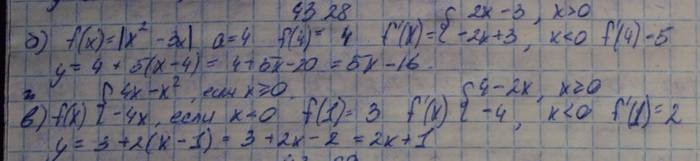 43 28
б) f(x)=|x² - 3x| a=4 f(4)= 4 f'(x)={ 2x-3, x>0 -2x+3, x<0 f'(4)-5
y= 4 + 5(x-4) = 4+5x-20 = 5x-16.
в) f(x) { 4x-x², если x≥0 -4x, если x<0 f(1)= 3 f'(x) { 4-2x, x≥0 -4, x<0 f'(1)= 2
y= 3+2(x-1)= 3+2x-2 = 2x+1